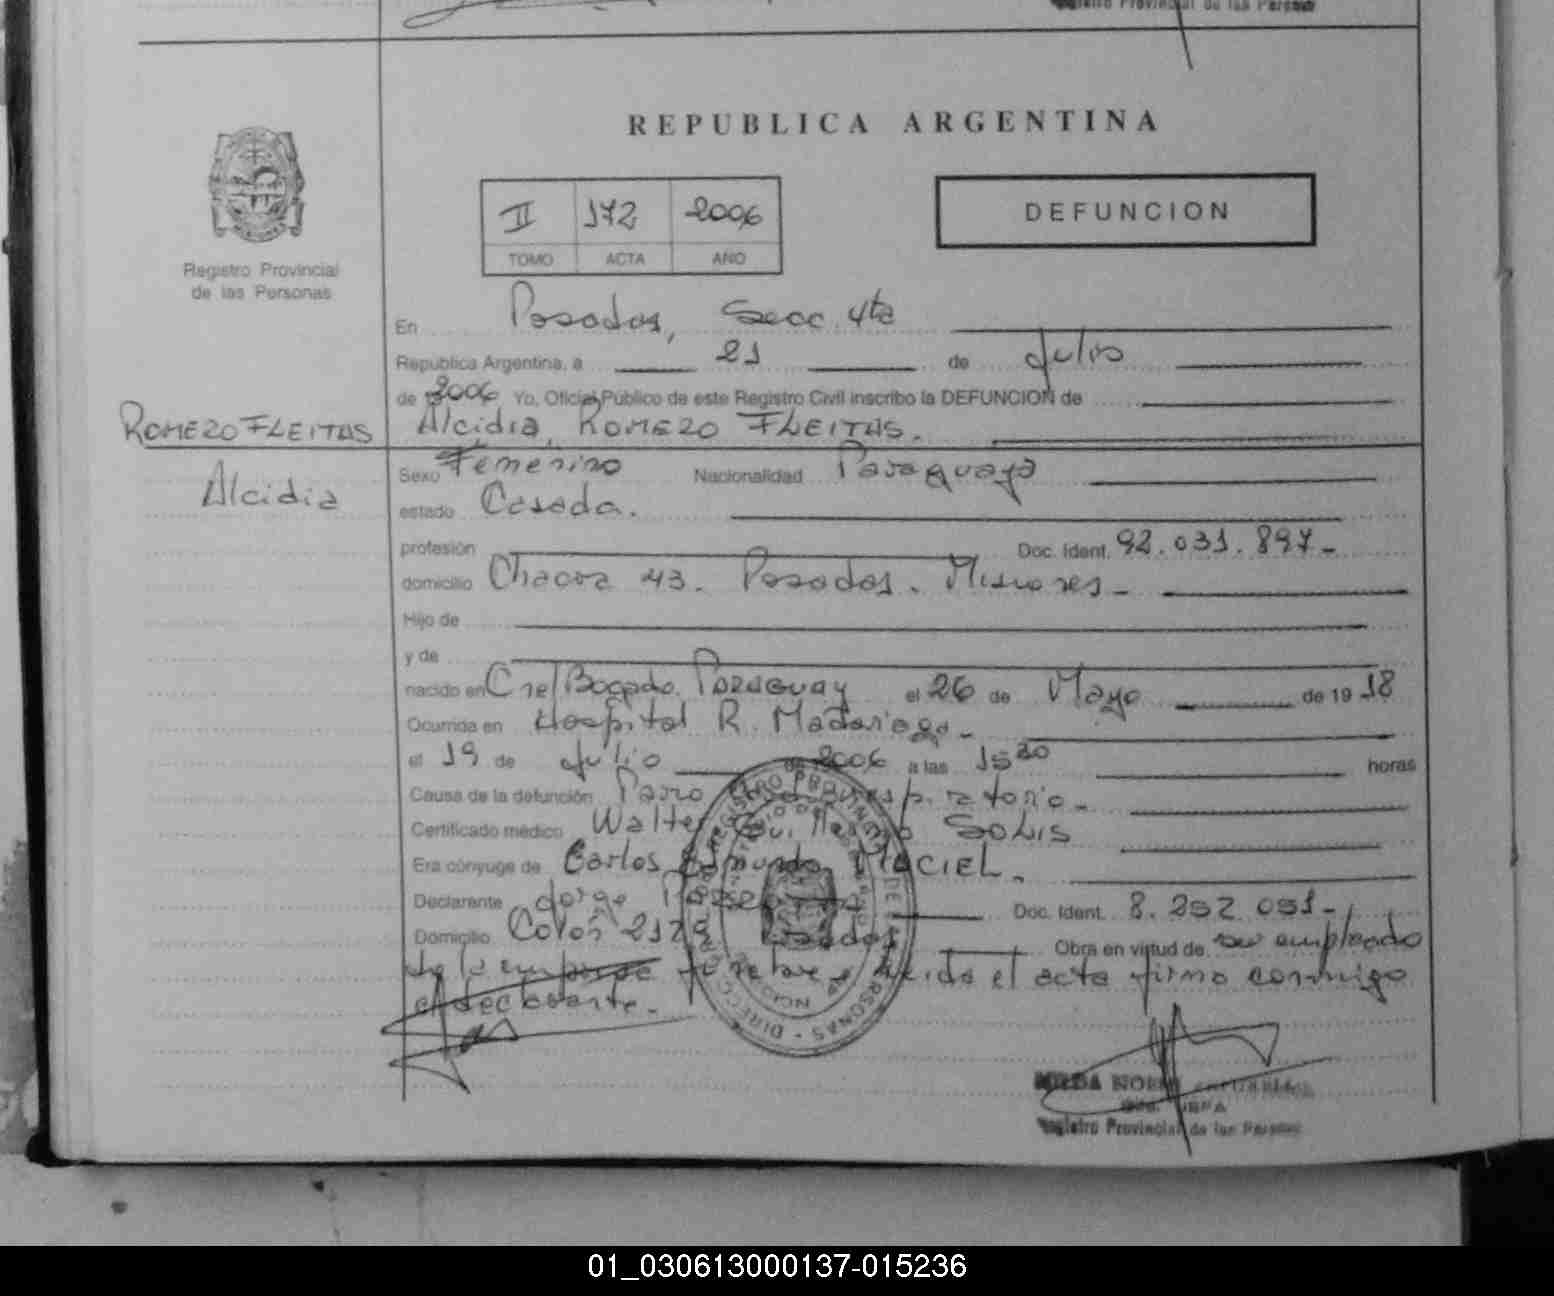 Registro Provincial de las Personas
REPUBLICA ARGENTINA
II 172 2006
TOMO ACTA AÑO
DEFUNCION
Registro Provincial
de las Personas
En Posadas, Secc. 4ta
República Argentina, a 21 de Julio
de 2006 Yo, Oficial Público de este Registro Civil inscribo la DEFUNCION de
ROMERO FLEITAS
Alcidia
Alcidia ROMERO FLEITAS.
Sexo Femenino Nacionalidad Paraguaya
estado Casada.
profesión Doc. Ident. 92.031.897-
domicilio Chacra 43. Posadas. Misiones-
Hijo de
y de
nacido en Cnel Bogado. Paraguay el 26 de Mayo de 19 18
Ocurrida en Hospital R. Madariaga-
el 19 de Julio de 2006 a las 15 30 horas
Causa de la defunción Paro
Certificado médico Walter SOLIS
Era cónyuge de Carlos MACIEL.
Declarante Jorge Doc. Ident. 8.252.051-
Domicilio Colón Posadas Obra en virtud de ser empleado
de la el acta firmo conmigo
el declarante.
NORMA
Registro Provincial de las Personas
01_030613000137-015236